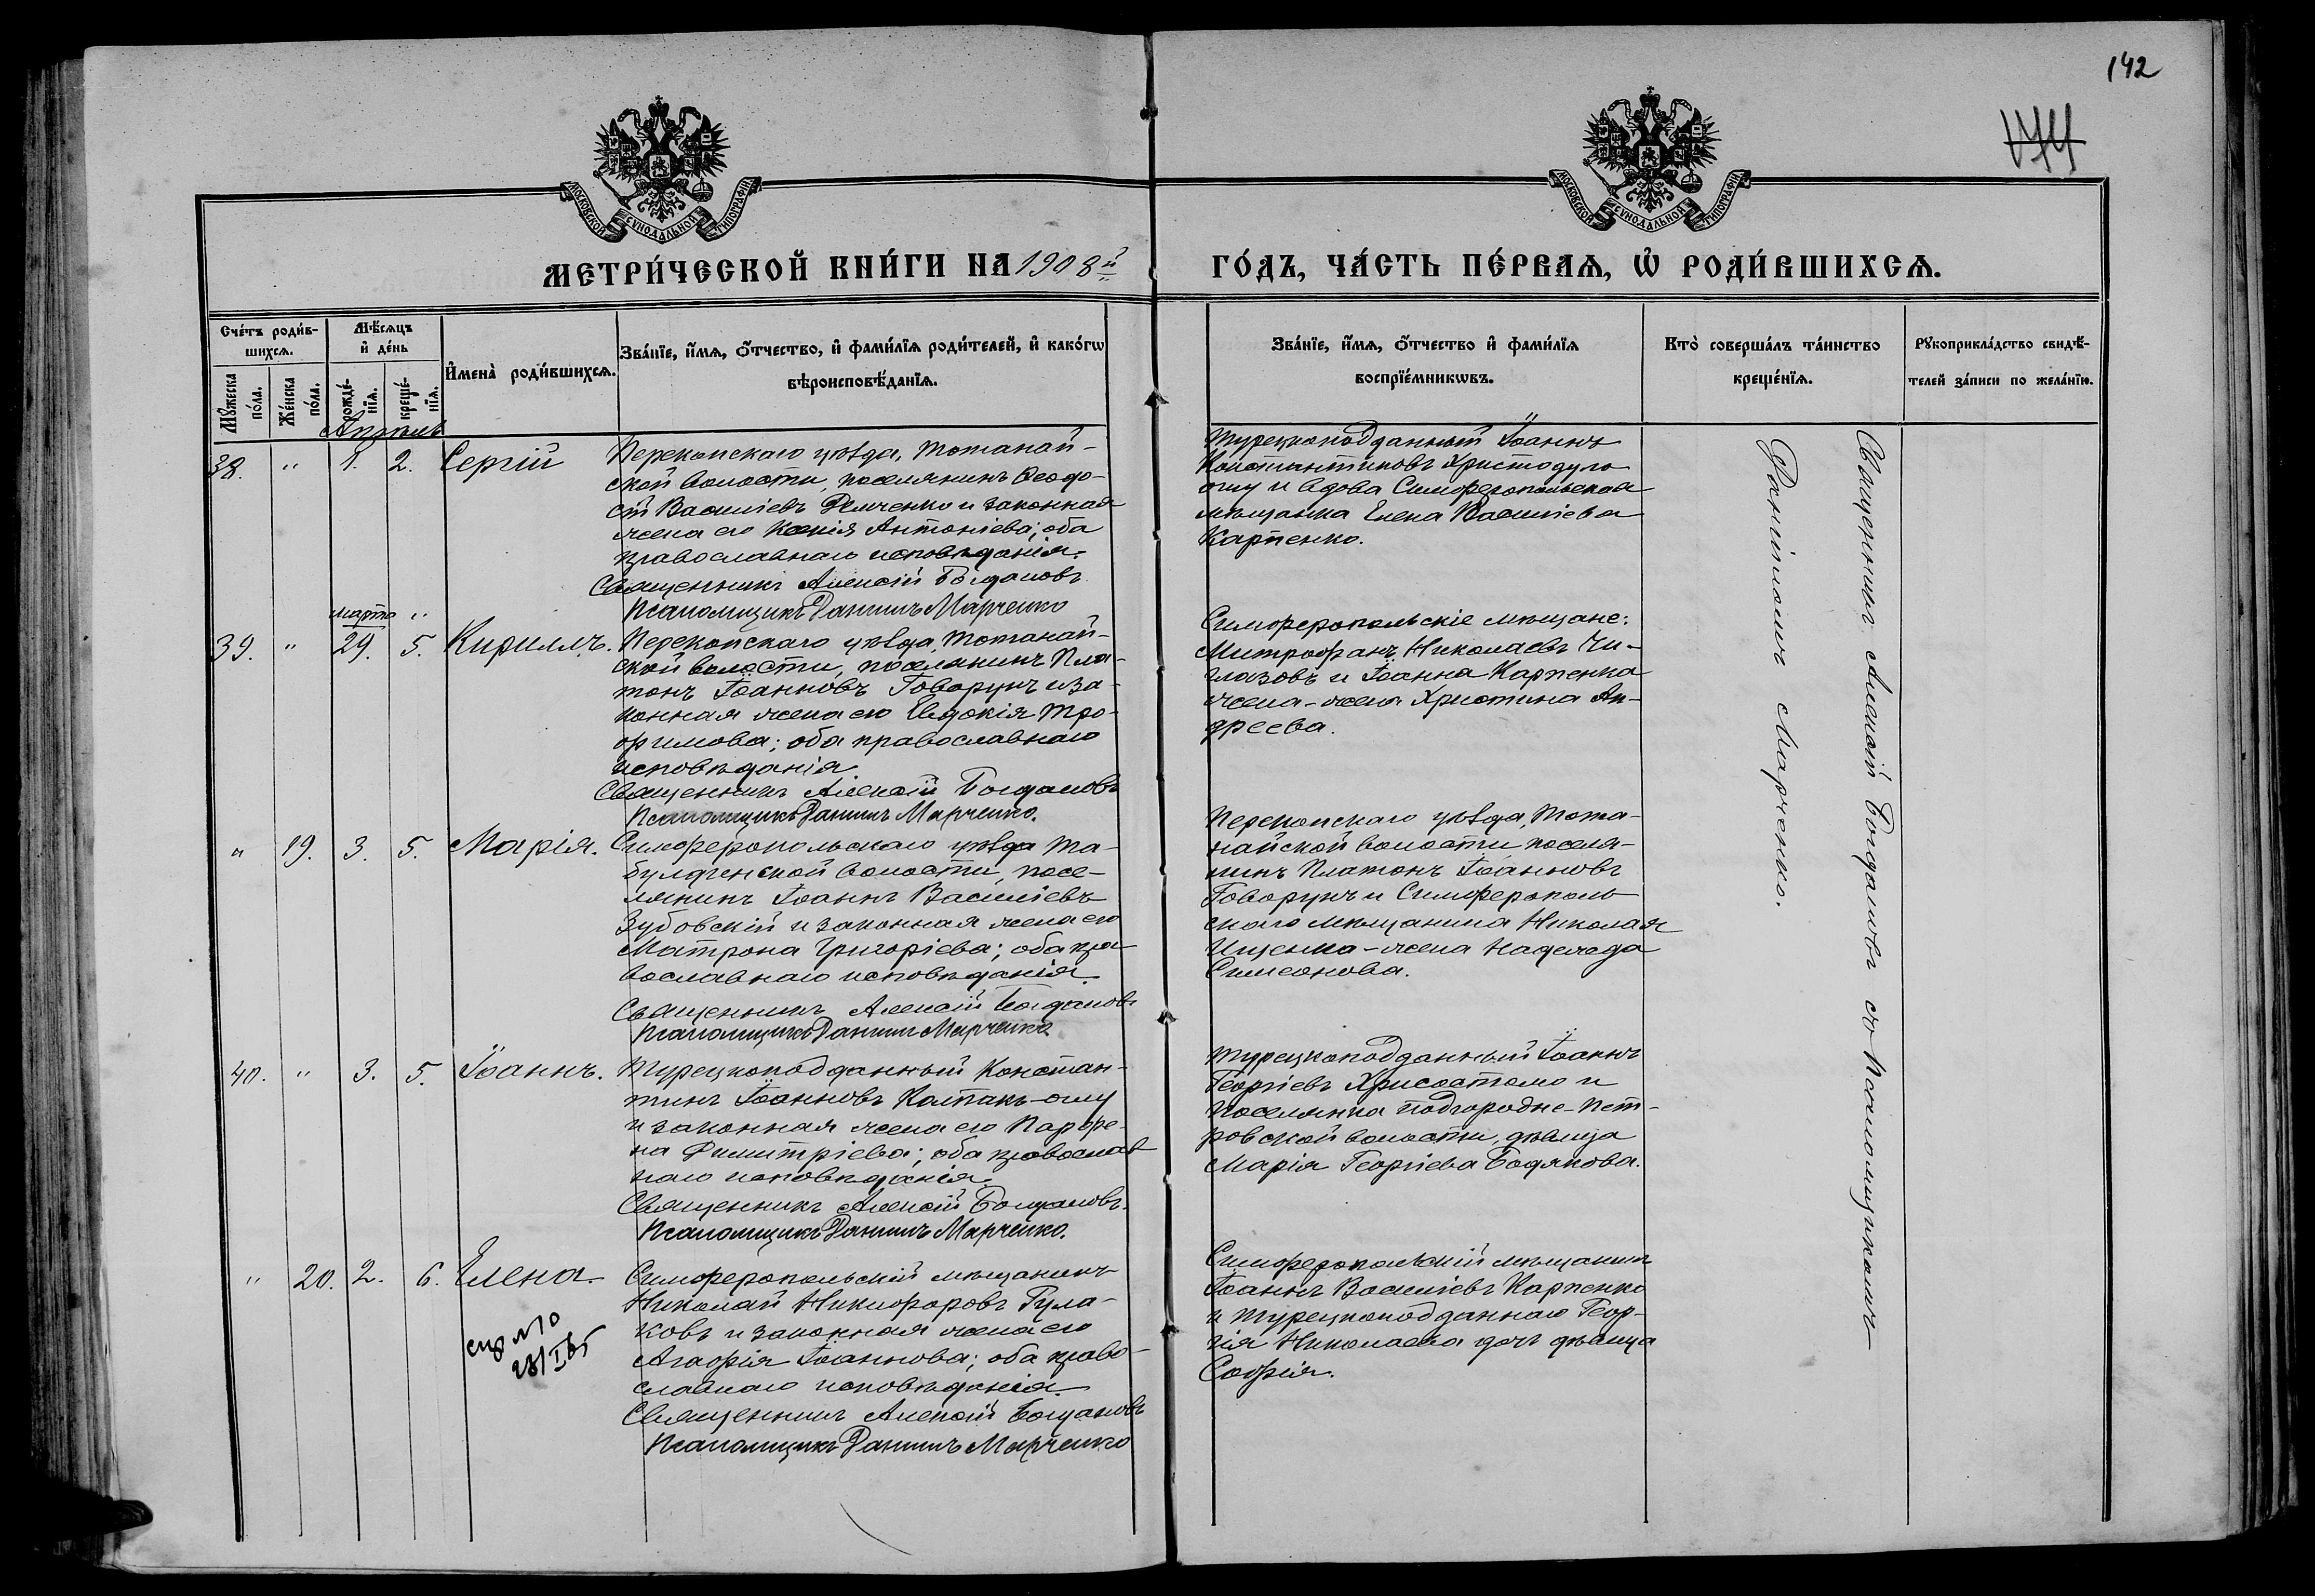 142
174
МОСКОВСКОЙ СѴНОДАЛЬНОЙ ТИПОГРАФІИ
МОСКОВСКОЙ СѴНОДАЛЬНОЙ ТИПОГРАФІИ
МЕТРИ́ЧЕСКОЙ КНИ́ГИ НА 1908й
ГО́ДЪ, ЧА́СТЬ ПЕ́РВАѦ, Ѡ҆ РОДИ́ВШИХСѦ.
Сче́тъ роди́в-
шихсѧ.
Мꙋ́жеска по́ла.
Же́нска по́ла.
Мѣ́сѧцъ
и҆ де́нь
рожде́-
нїѧ.
креще́-
нїѧ.
И҆мена̀ роди́вшихсѧ.
Зва́нїе, и҆́мѧ, ѻ҆́тчество, и҆ фами́лїѧ роди́телей, и҆ како́гѡ
вѣроисповѣ́данїѧ.
Зва́нїе, и҆́мѧ, ѻ҆́тчество и҆ фами́лїѧ
воспрїе́мникѡвъ.
Кто̀ соверша́лъ та́инство
креще́нїѧ.
Рꙋкоприкла́дство свидѣ́-
телей за́писи по жела́нїю.
Апрель
38. " 1. 2. Сергій
Перекопскаго уѣзда, Тотанай-
ской волости, поселянинъ Ѳеодо-
сій Василіевъ Демченко и законная
жена его Ксенія Антоніева; оба
православнаго исповѣданія.
Священникъ Алексій Богдановъ
Псаломщикъ Даніилъ Марченко
Турецкоподданный Іоаннъ
Константиновъ Христодуло
оглу и вдова Симферопольская
мѣщанка Елена Василіева
Карпенко.
марта "
39. " 29. 5. Кириллъ.
Перекопскаго уѣзда, Тотанай-
ской волости, поселянинъ Пла-
тонъ Іоанновъ Говорунъ и за-
конная жена его Евдокія Тро-
фимова; оба православнаго
исповѣданія.
Священникъ Алексій Богдановъ
Псаломщикъ Даніилъ Марченко.
Симферопольскіе мѣщане:
Митрофанъ Николаевъ Чи-
глазовъ и Іоанна Карпенка
жена-жена Христина Ан-
дреева.
" 19. 3. 5. Марія.
Симферопольскаго уѣзда Та-
булдинской волости, посе-
лянинъ Іоаннъ Василіевъ
Зубовскій и законная жена его
Матрона Григоріева; оба пра-
вославнаго исповѣданія.
Священникъ Алексій Богдановъ
Псаломщикъ Даніилъ Марченко
Перекопскаго уѣзда, Тота-
найской волости поселя-
нинъ Платонъ Іоанновъ
Говорунъ и Симферополь
скаго мѣщанина Николая
Ищенка-жена Надежда
Симеонова.
40. " 3. 5. Іоаннъ.
Турецкоподданный Констан-
тинъ Іоанновъ Колпакъ-оглу
и законная жена его Парфе-
на Димитріева; оба православ
наго исповѣданія.
Священникъ Алексій Богдановъ.
Псаломщикъ Даніилъ Марченко.
Турецкоподданный Іоаннъ
Георгіевъ Хрисостомо и
поселянка подгородне-Пет-
ровской волости, дѣвица
Марія Георгіева Бодякова.
" 20. 2. 6. Елена.
Симферопольскій мѣщанинъ
Николай Никифоровъ Гула-
ковъ и законная жена его
Агафія Іоаннова; оба право-
славнаго исповѣданія.
Священникъ Алексій Богдановъ
Псаломщикъ Даніилъ Марченко
Симферопольскій мѣщанинъ
Іоаннъ Василіевъ Карпенко
и турецкоподданнаго Геор-
гія Николаева дочь дѣвица
Софія.
Священникъ Алексій Богдановъ съ Псаломщикомъ
Даніиломъ Марченко.